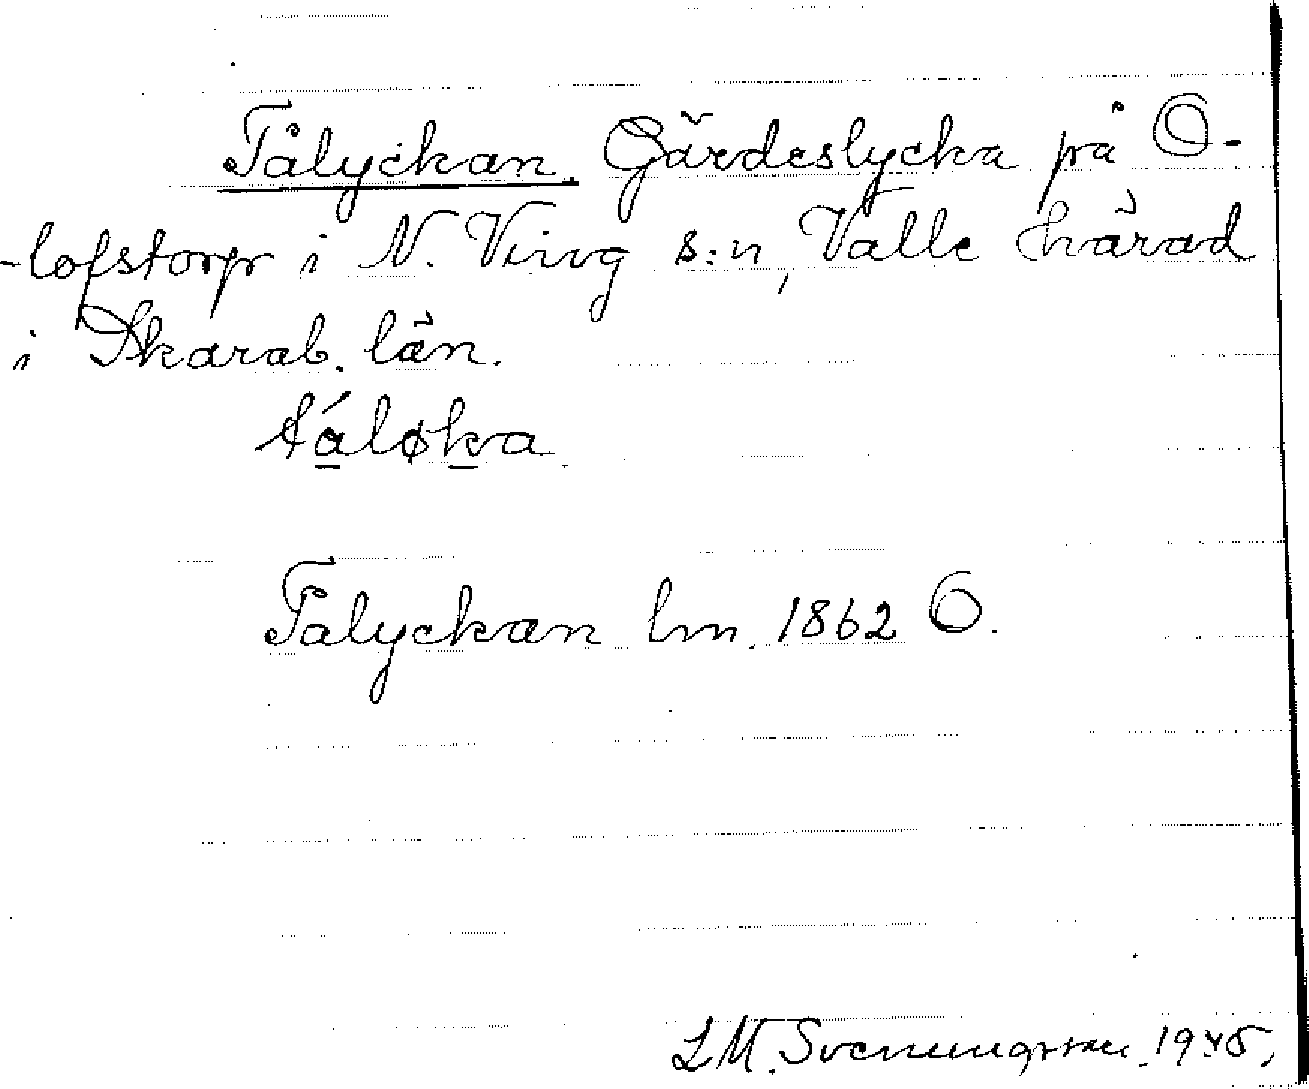 Tålyckan. Gärdeslycka på O-
-lofstorp i N. Ving s:n, Valle härad
i Skarab. län.
tálø̱ka
Tålyckan lm. 1862 O.
L M. Svenungsson. 1945.